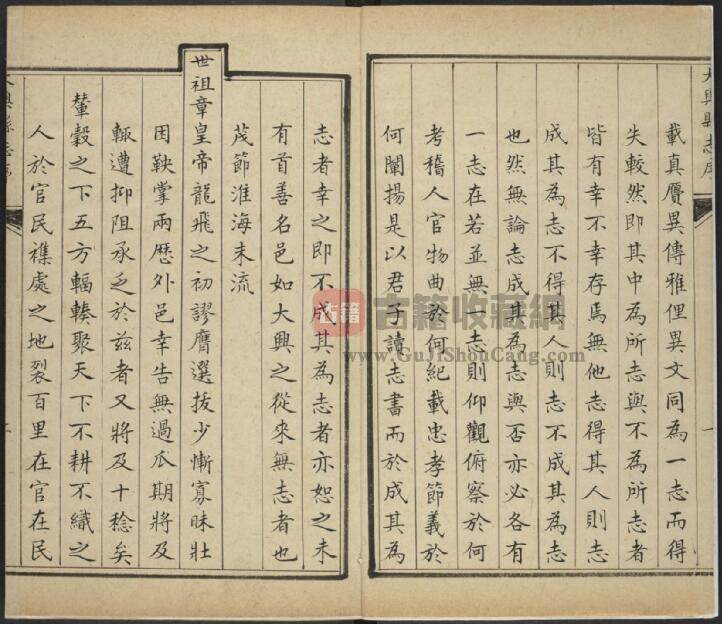 大興縣志序
載真贗異傳雅俚異文同為一志而得
失較然即其中為所志與不為所志者
皆有幸不幸存焉無他志得其人則志
成其為志不得其人則志不成其為志
也然無論志成其為志與否亦必各有
一志在若並無一志則仰觀俯察於何
考稽人官物曲於何紀載忠孝節義於
何闡揚是以君子讀志書而於成其為
志者幸之即不成其為志者亦恕之未
有首善名邑如大興之從來無志者也
茂節淮海末流
世祖章皇帝龍飛之初謬膺選拔少慚寡昧壯
因鞅掌兩歷外邑幸告無過瓜期將及
輒遭抑阻承乏於茲者又將及十稔矣
輦轂之下五方輻輳聚天下不耕不織之
人於官民襍處之地裂百里在官在民
古籍 古籍收藏網
www.GuJiShouCang.com